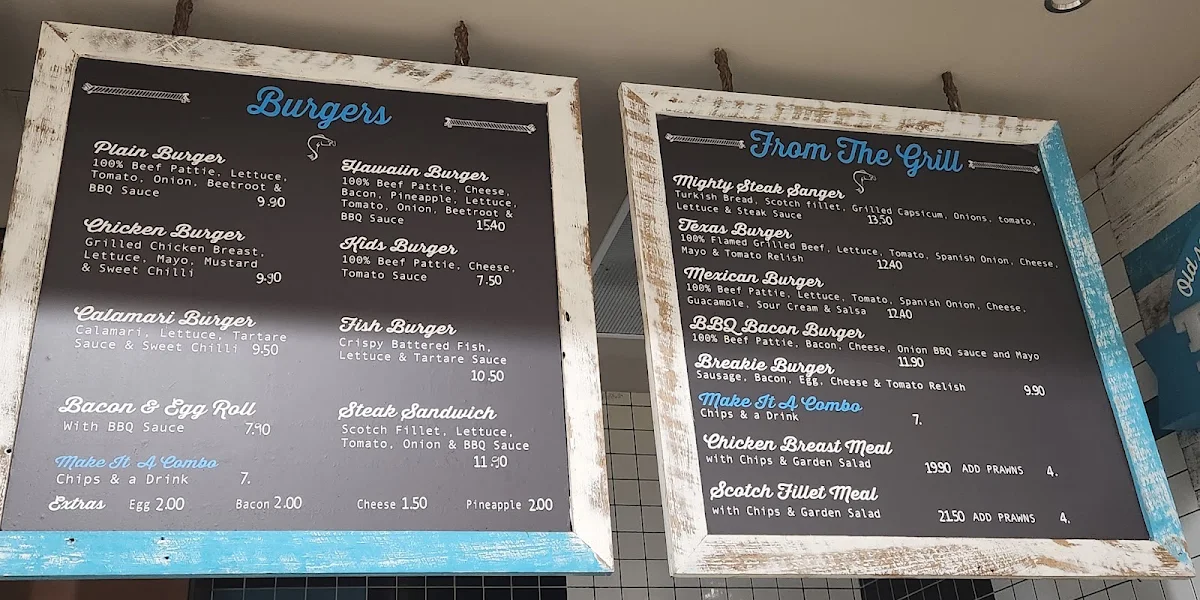 Burgers
Plain Burger
100% Beef Pattie, Lettuce,
Tomato, Onion, Beetroot &
BBQ Sauce
9.90
Chicken Burger
Grilled Chicken Breast,
Lettuce, Mayo, Mustard
& Sweet Chilli
9.90
Calamari Burger
Calamari, Lettuce, Tartare
Sauce & Sweet Chilli 9.50
Bacon & Egg Roll
With BBQ Sauce 7.90
Make It A Combo
Chips & a Drink 7.
Hawaiin Burger
100% Beef Pattie, Cheese,
Bacon, Pineapple, Lettuce,
Tomato, Onion, Beetroot &
BBQ Sauce 15.40
Kids Burger
100% Beef Pattie, Cheese,
Tomato Sauce 7.50
Fish Burger
Crispy Battered Fish,
Lettuce & Tartare Sauce
10.50
Steak Sandwich
Scotch Fillet, Lettuce,
Tomato, Onion & BBQ Sauce
11.90
Extras Egg 2.00 Bacon 2.00 Cheese 1.50 Pineapple 2.00
From The Grill
Mighty Steak Sanger
Turkish Bread, Scotch fillet, Grilled Capsicum, Onions, tomato,
Lettuce & Steak Sauce 13.50
Texas Burger
100% Flamed Grilled Beef, Lettuce, Tomato, Spanish Onion, Cheese,
Mayo & Tomato Relish 12.40
Mexican Burger
100% Beef Pattie, Lettuce, Tomato, Spanish Onion, Cheese,
Guacamole, Sour Cream & Salsa 12.40
BBQ Bacon Burger
100% Beef Pattie, Bacon, Cheese, Onion BBQ sauce and Mayo
11.90
Breakie Burger
Sausage, Bacon, Egg, Cheese & Tomato Relish 9.90
Make It A Combo
Chips & a Drink 7.
Chicken Breast Meal
with Chips & Garden Salad 19.90 ADD PRAWNS 4.
Scotch Fillet Meal
with Chips & Garden Salad 21.50 ADD PRAWNS 4.